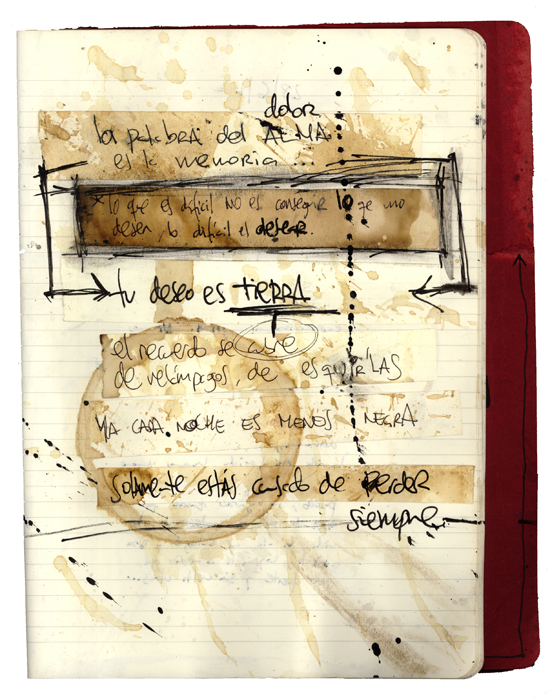 dolor
la palabra del ALMA
es la memoria ...
* lo que es difícil NO es conseguir lo qe uno
desea, lo difícil es desear.
tu deseo es TIERRA
el recuerdo se cubre
de relámpagos, de esquirlas
YA CADA NOCHE ES MENOS NEGRA
solamente estás cansado de perder
siempre...